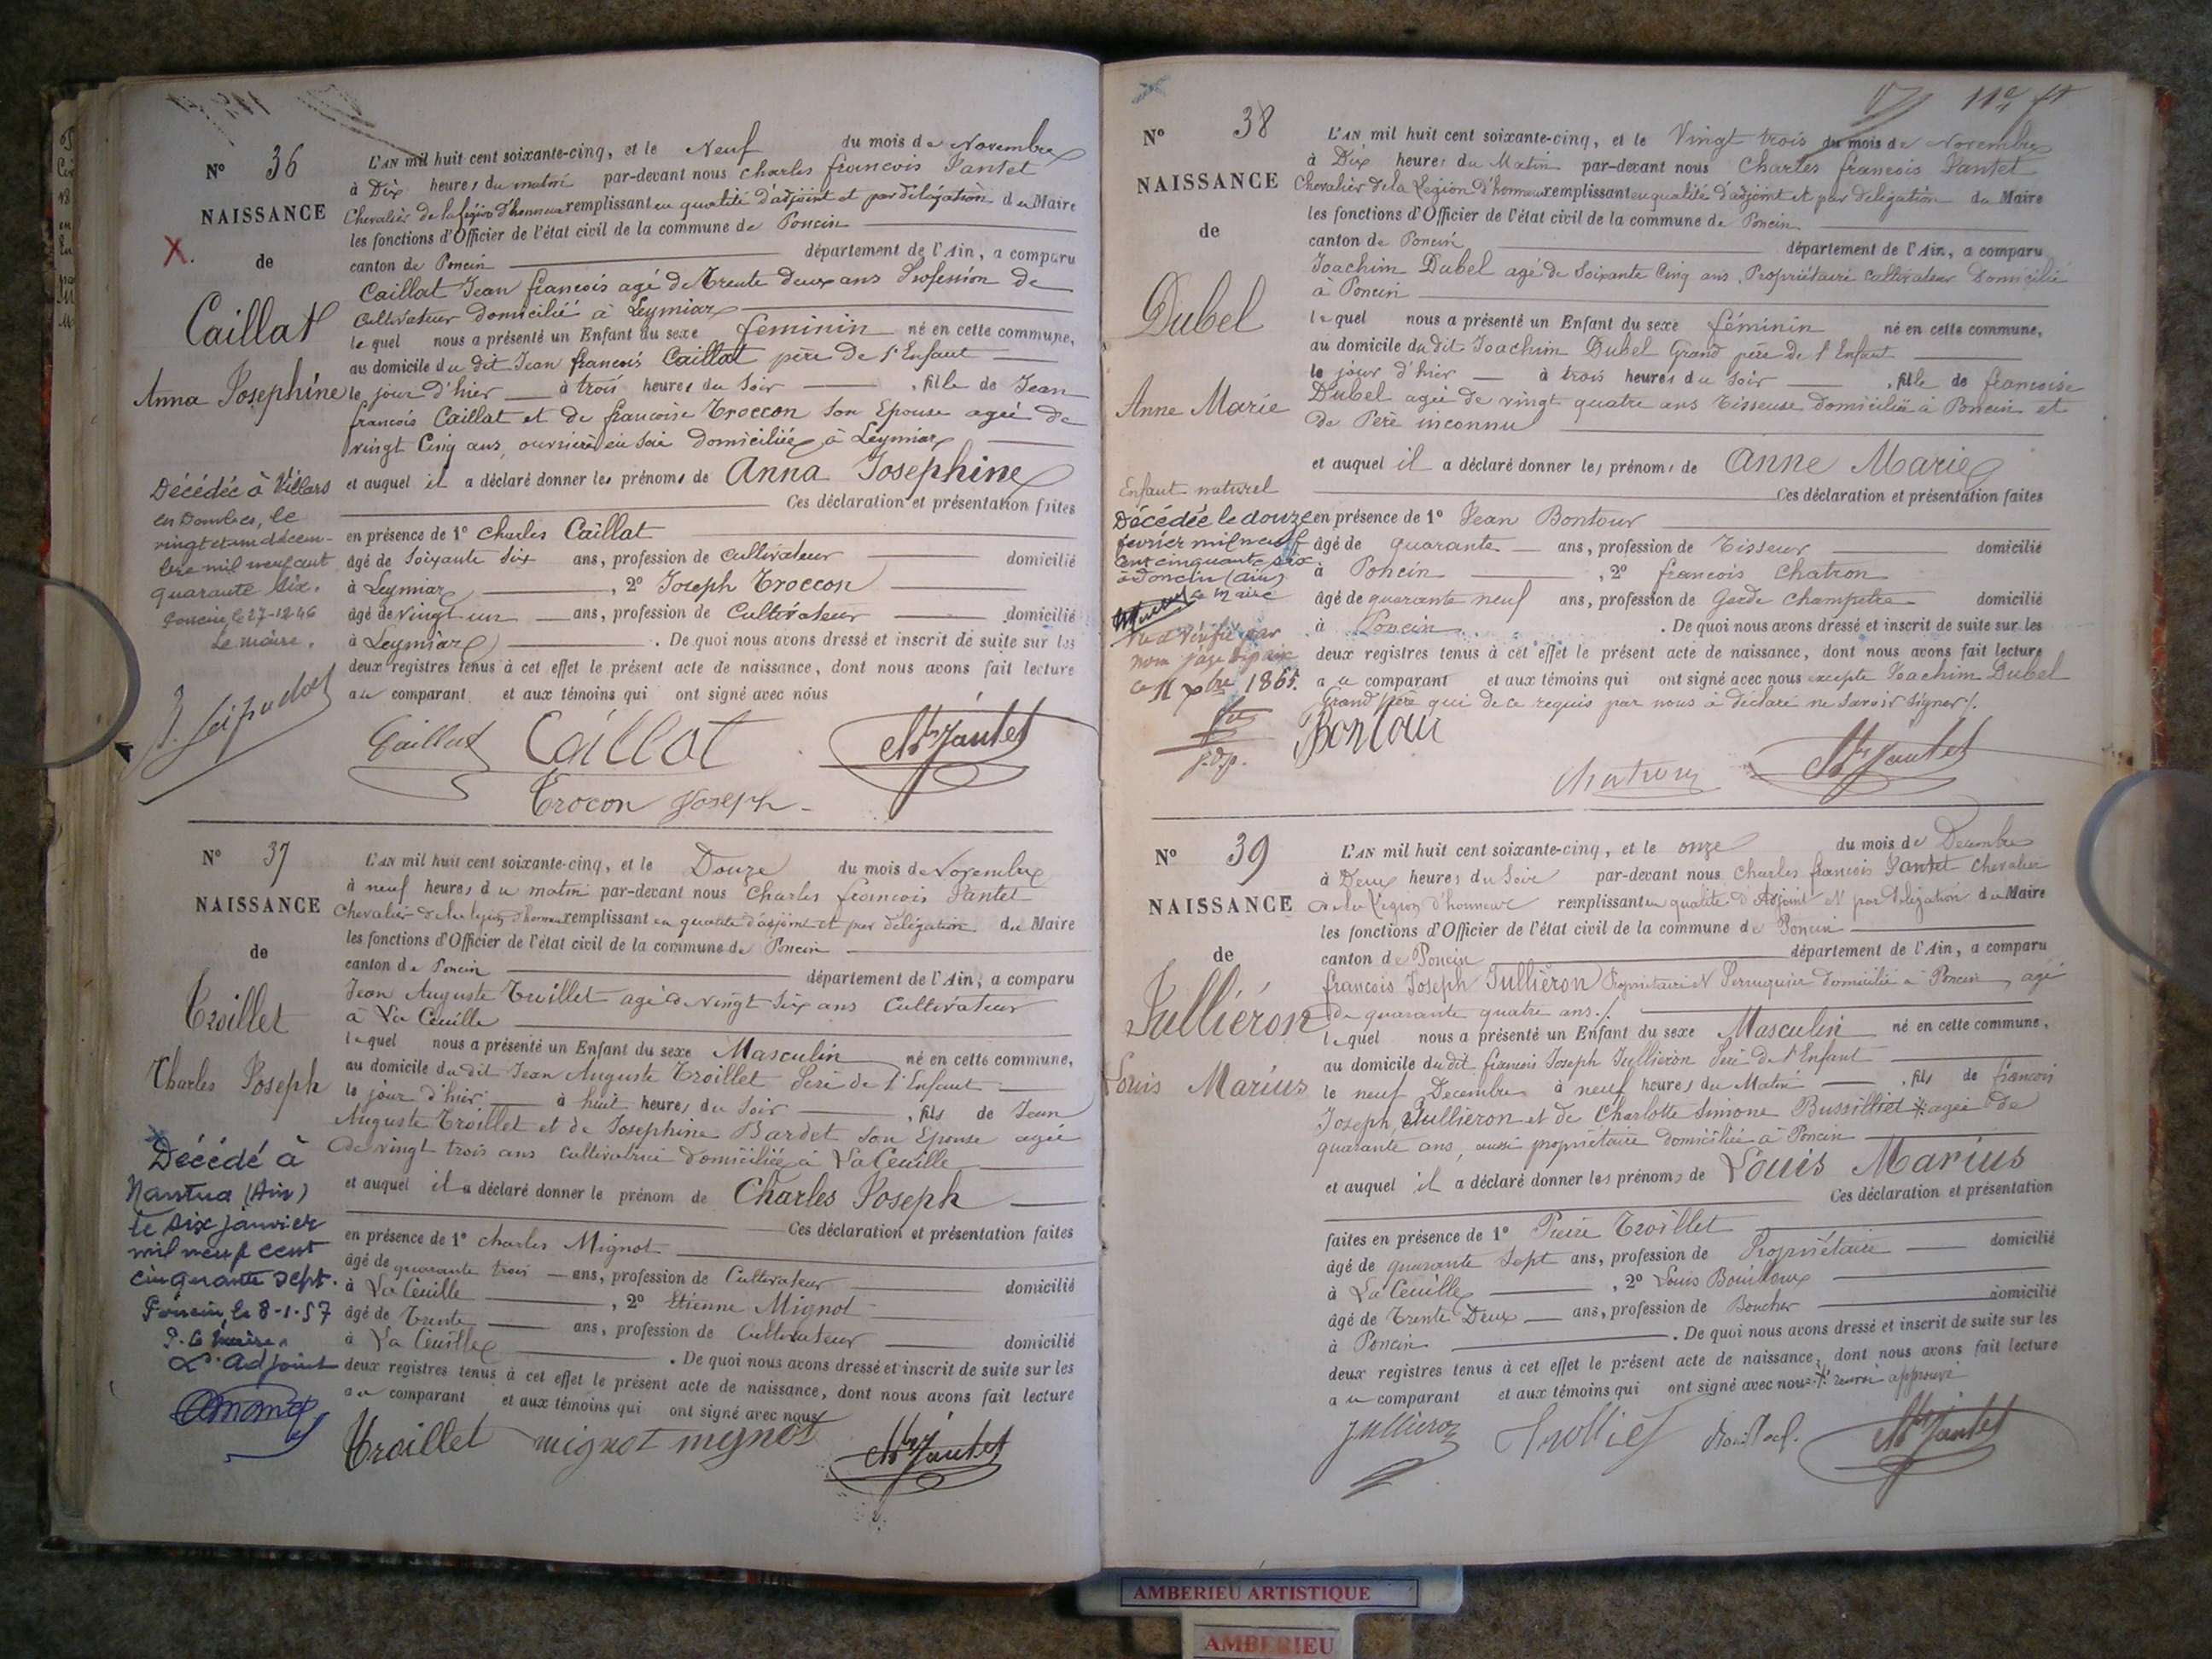 N° 36
NAISSANCE
de
Caillat
Anna Josephine
Décédée à Villars
les Dombes, le
vingt et un décem-
bre mil neuf cent
quarante six.
Poncin, le 27-12-46
Le maire,
L'AN mil huit cent soixante-cinq, et le Neuf du mois de Novembre
à Dix heures du matin par-devant nous Charles francois Jantet
Chevalier de la légion d'honneur remplissant en qualité d'adjoint et par délégation du Maire
les fonctions d'Officier de l'état civil de la commune de Poncin
canton de Poncin département de l'Ain, a comparu
Caillat Jean francois agé de Trente deux ans Profession de
Cultivateur domicilié à Leymiar
lequel nous a présenté un Enfant du sexe feminin né en cette commune,
au domicile du dit Jean francois Caillat père de l'Enfant
le jour d'hier à trois heures du Soir , fille de Jean
francois Caillat et de francoise Troccon Son Epouse agée de
vingt Cinq ans, ouvriere en Soie domiciliée à Leymiar
et auquel il a déclaré donner les prénoms de Anna Josephine
Ces déclaration et présentation faites
en présence de 1° Charles Caillat
âgé de Soixante dix ans, profession de Cultivateur domicilié
à Leymiar , 2° Joseph Troccon
âgé de vingt un ans, profession de Cultivateur domicilié
à Leymiar . De quoi nous avons dressé et inscrit de suite sur les
deux registres tenus à cet effet le présent acte de naissance, dont nous avons fait lecture
au comparant et aux témoins qui ont signé avec nous
Caillat Caillat Ch Jantet
Trocon Joseph
N° 37
NAISSANCE
de
Troillet
Charles Joseph
Décédé à
Nantua (Ain)
le six janvier
mil neuf cent
cinquante sept.
Poncin, le 8-1-57
P. le Maire,
L'adjoint
L'AN mil huit cent soixante-cinq, et le Douze du mois de Novembre
à neuf heures du matin par-devant nous Charles francois Jantet
Chevalier de la legion d'honneur remplissant en qualité d'adjoint et par délégation du Maire
les fonctions d'Officier de l'état civil de la commune de Poncin
canton de Poncin département de l'Ain, a comparu
Jean Auguste Troillet agé de vingt Six ans Cultivateur
à La Ceuille
lequel nous a présenté un Enfant du sexe Masculin né en cette commune,
au domicile du dit Jean Auguste Troillet Père de l'Enfant
le jour d'hier à huit heures du Soir , fils de Jean
Auguste Troillet et de Josephine Bardet Son Epouse agée
de vingt trois ans Cultivatrice domiciliée à La Ceuille
et auquel il a déclaré donner le prénom de Charles Joseph
Ces déclaration et présentation faites
en présence de 1° Charles Mignot
âgé de quarante trois ans, profession de Cultivateur domicilié
à La Ceuille , 2° Etienne Mignot
âgé de Trente ans, profession de Cultivateur domicilié
à La Ceuille . De quoi nous avons dressé et inscrit de suite sur les
deux registres tenus à cet effet le présent acte de naissance, dont nous avons fait lecture
au comparant et aux témoins qui ont signé avec nous
Troillet mignot mignot Ch Jantet
N° 38
NAISSANCE
de
Dubel
Anne Marie
Enfant naturel
Décédée le douze
février mil neuf
cent cinquante six
à Poncin (Ain)
Le Maire
Vu et vérifié par
nous juge de paix
ce 11 xbre 1865.
j.d.p.
L'AN mil huit cent soixante-cinq, et le Vingt trois du mois de Novembre
à Dix heures du Matin par-devant nous Charles francois Jantet
Chevalier de la Legion d'honneur remplissant en qualité d'adjoint et par délégation du Maire
les fonctions d'Officier de l'état civil de la commune de Poncin
canton de Poncin département de l'Ain, a comparu
Joachim Dubel agé de Soixante Cinq ans, Propriétaire Cultivateur Domicilié
à Poncin
lequel nous a présenté un Enfant du sexe féminin né en cette commune,
au domicile du dit Joachim Dubel Grand père de l'Enfant
le jour d'hier à trois heures du Soir , fille de francoise
Dubel agée de vingt quatre ans Tisseuse domiciliée à Poncin et
de Père inconnu
et auquel il a déclaré donner les prénoms de Anne Marie
Ces déclaration et présentation faites
en présence de 1° Jean Bontour
âgé de quarante ans, profession de Tisseur domicilié
à Poncin , 2° francois Chatron
âgé de quarante neuf ans, profession de Garde Champetre domicilié
à Poncin . De quoi nous avons dressé et inscrit de suite sur les
deux registres tenus à cet effet le présent acte de naissance, dont nous avons fait lecture
au comparant et aux témoins qui ont signé avec nous excepte Joachim Dubel
Grand père qui de ce requis par nous à déclaré ne Savoir Signer /.
Bontour
Chatron Ch Jantet
N° 39
NAISSANCE
de
Jullièron
Louis Marius
L'AN mil huit cent soixante-cinq, et le onze du mois de Decembre
à Deux heures du Soir par-devant nous Charles francois Jantet Chevalier
de la Legion d'honneur remplissant en qualité d'Adjoint et par délégation du Maire
les fonctions d'Officier de l'état civil de la commune de Poncin
canton de Poncin département de l'Ain, a comparu
francois Joseph Jullièron Propriétaire et Perruquier domicilié à Poncin, agé
de quarante quatre ans /.
lequel nous a présenté un Enfant du sexe Masculin né en cette commune,
au domicile du dit francois Joseph Jullièron Père de l'Enfant
le neuf Decembre à neuf heures du Matin , fils de francois
Joseph Jullièron et de Charlotte Simone Bussilliet agée de
quarante ans, aussi propriétaire domiciliée à Poncin
et auquel il a déclaré donner les prénoms de Louis Marius
Ces déclaration et présentation
faites en présence de 1° Pierre Troillet
âgé de quarante Sept ans, profession de Propriétaire domicilié
à La Ceuille , 2° Louis Bouilloux
âgé de Trente Deux ans, profession de Boucher domicilié
à Poncin . De quoi nous avons dressé et inscrit de suite sur les
deux registres tenus à cet effet le présent acte de naissance, dont nous avons fait lecture
au comparant et aux témoins qui ont signé avec nous renvoi approuvé
Jullieron Trolliet Ch Jantet
AMBERIEU ARTISTIQUE
AMBERIEU